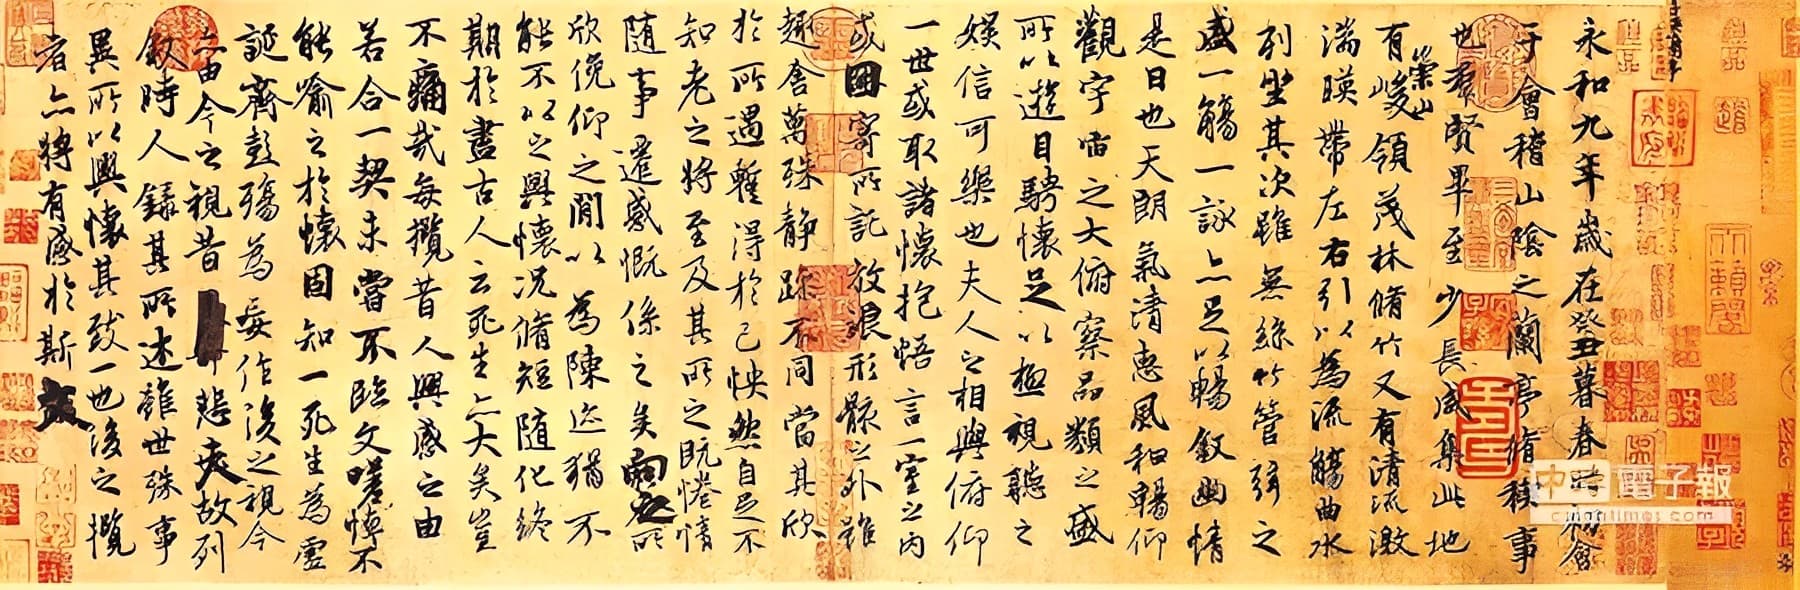 永和九年歲在癸丑暮春之初會
于會稽山陰之蘭亭脩稧事
也羣賢畢至少長咸集此地
有崇山峻領茂林脩竹又有清流激
湍暎帶左右引以為流觴曲水
列坐其次雖無絲竹管弦之
盛一觴一詠亦足以暢敘幽情
是日也天朗氣清惠風和暢仰
觀宇宙之大俯察品類之盛
所以遊目騁懷足以極視聽之
娛信可樂也夫人之相與俯仰
一世或取諸懷抱悟言一室之內
或因寄所託放浪形骸之外雖
趣舍萬殊靜躁不同當其欣
於所遇蹔得於己怏然自足不
知老之將至及其所之既惓情
隨事遷感慨係之矣向之所
欣俛仰之閒以為陳迹猶不
能不以之興懷況脩短隨化終
期於盡古人云死生亦大矣豈
不痛哉每攬昔人興感之由
若合一契未嘗不臨文嗟悼不
能喻之於懷固知一死生為虛
誕齊彭殤為妄作後之視今
亦由今之視昔悲夫故列
敘時人錄其所述雖世殊事
異所以興懷其致一也後之攬
者亦將有感於斯文
中時電子報
chinatimes.com